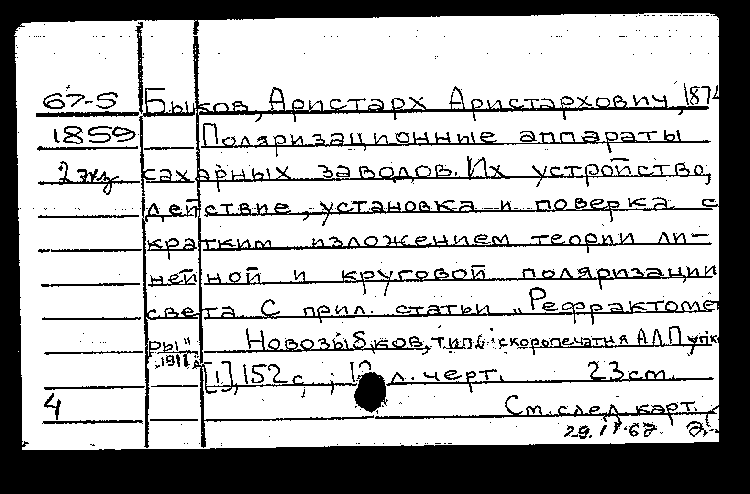 67-5 Быков, Аристарх Аристархович, 187
1859 Поляризационные аппараты
2 экз сахарных заводов. Их устройство,
действие, установка и поверка с
кратким изложением теории ли-
нейной и круговой поляризации
света С прил. статьи „Рефрактоме
ры" Новозыбков, тип. скоропечатня А.Л.П
1911
[1], 152 с.; л. черт. 23 см.
4 См. след. карт.
29. 67